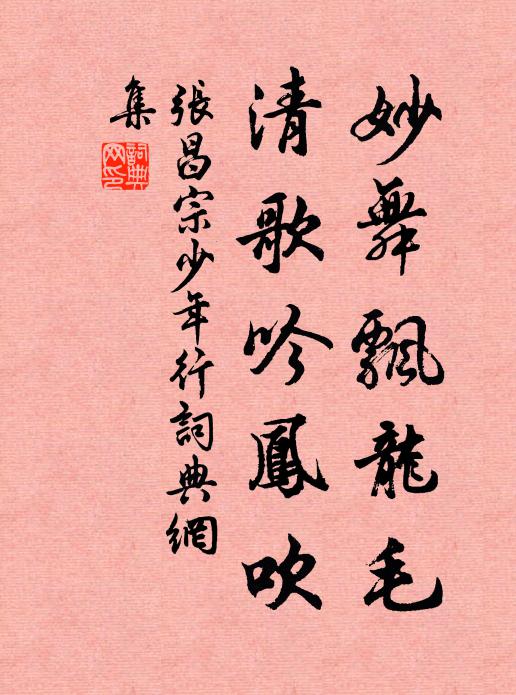 妙舞飄龍毛
清歌吟鳳吹
張昌宗少年行詞典網
集
詞典
网印